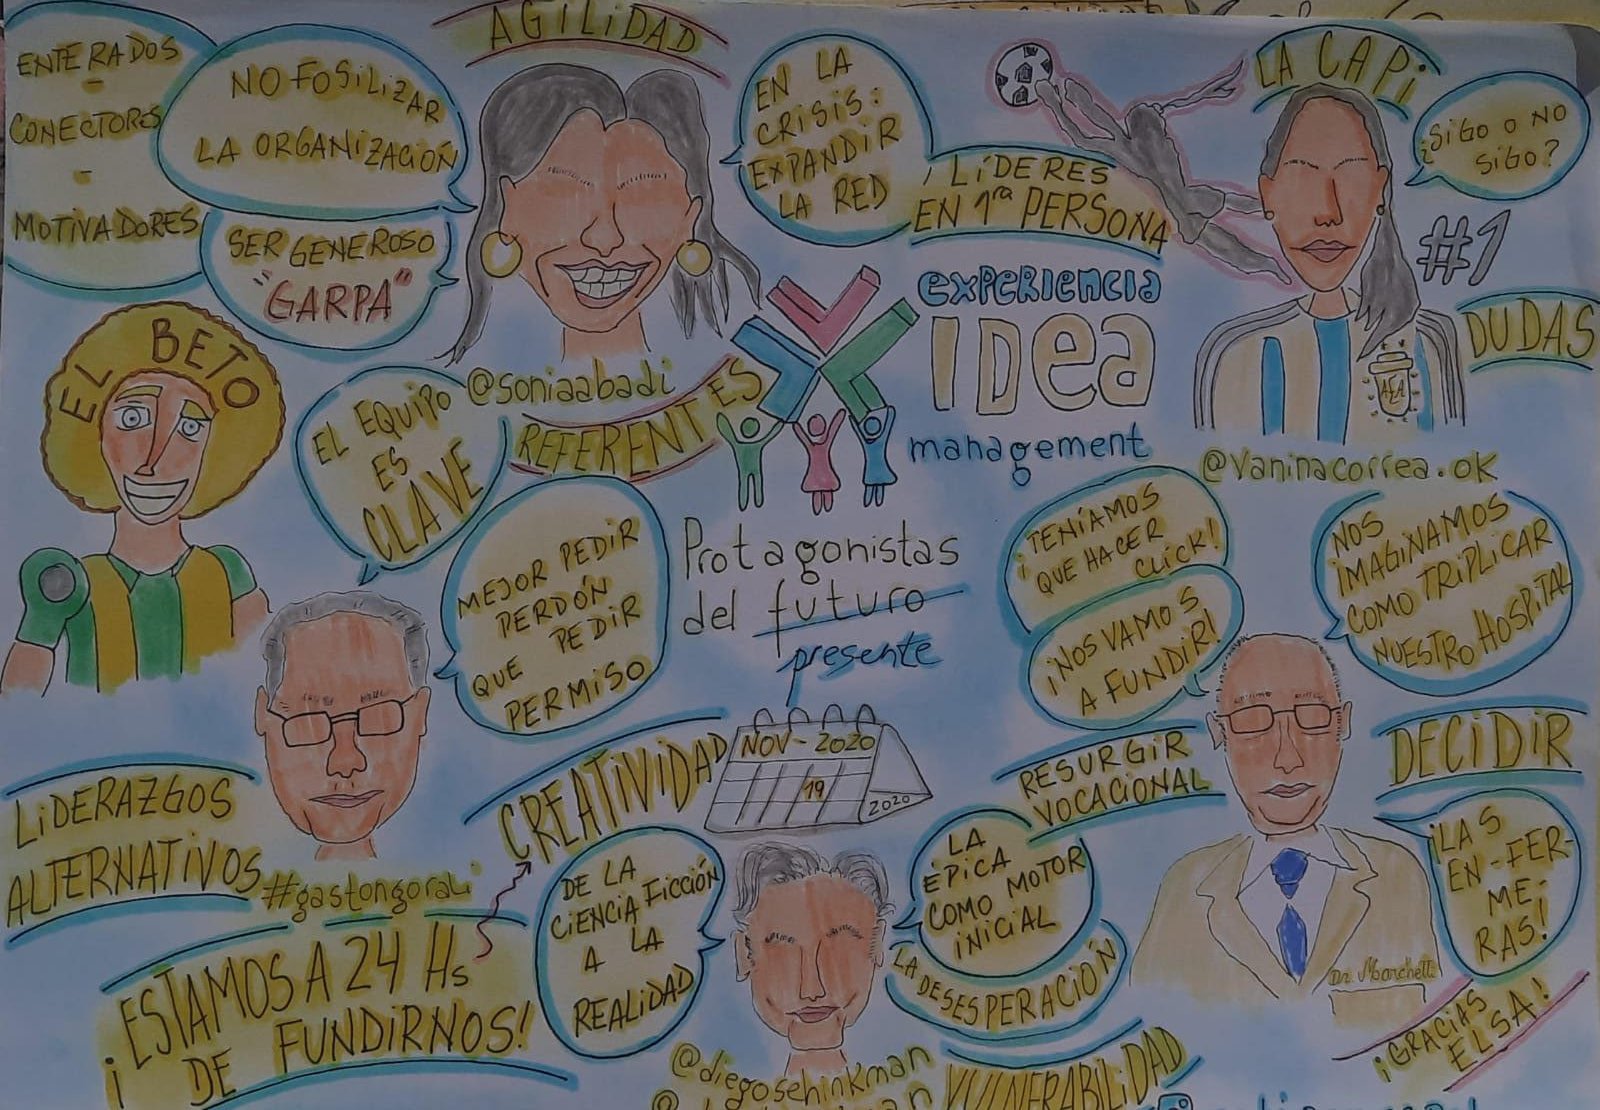 ENTERADOS
-
CONECTORES
-
MOTIVADORES
NO FOSILIZAR
LA ORGANIZACIÓN
SER GENEROSO
"GARPA"
AGILIDAD
EN LA
CRISIS:
EXPANDIR
LA RED
LÍDERES
EN 1ra PERSONA
LA CAPI
¿SIGO O NO
SIGO?
#1
DUDAS
AFA
@vaninacorrea.ok
EL BETO
@soniaabadi
REFERENTES
experiencia
IDEA
management
EL EQUIPO
ES
CLAVE
MEJOR PEDIR
PERDÓN
QUE PEDIR
PERMISO
Protagonistas
del futuro
presente
¡TENÍAMOS
QUE HACER
CLICK!
¡NOS VAMOS
A FUNDIR!
NOS
IMAGINAMOS
COMO TRIPLICAR
NUESTRO HOSPITAL
LIDERAZGOS
ALTERNATIVOS
#gastongorali
CREATIVIDAD
NOV-2020
19
2020
RESURGIR
VOCACIONAL
DECIDIR
¡LAS
EN-FER-
ME-
RAS!
Dr. Marchetti
¡GRACIAS
ELSA!
¡ESTAMOS A 24 Hs
DE FUNDIRNOS!
DE LA
CIENCIA FICCIÓN
A LA
REALIDAD
LA
ÉPICA
COMO MOTOR
INICIAL
LA DESESPERACIÓN
@diegosehinkman
VULNERABILIDAD